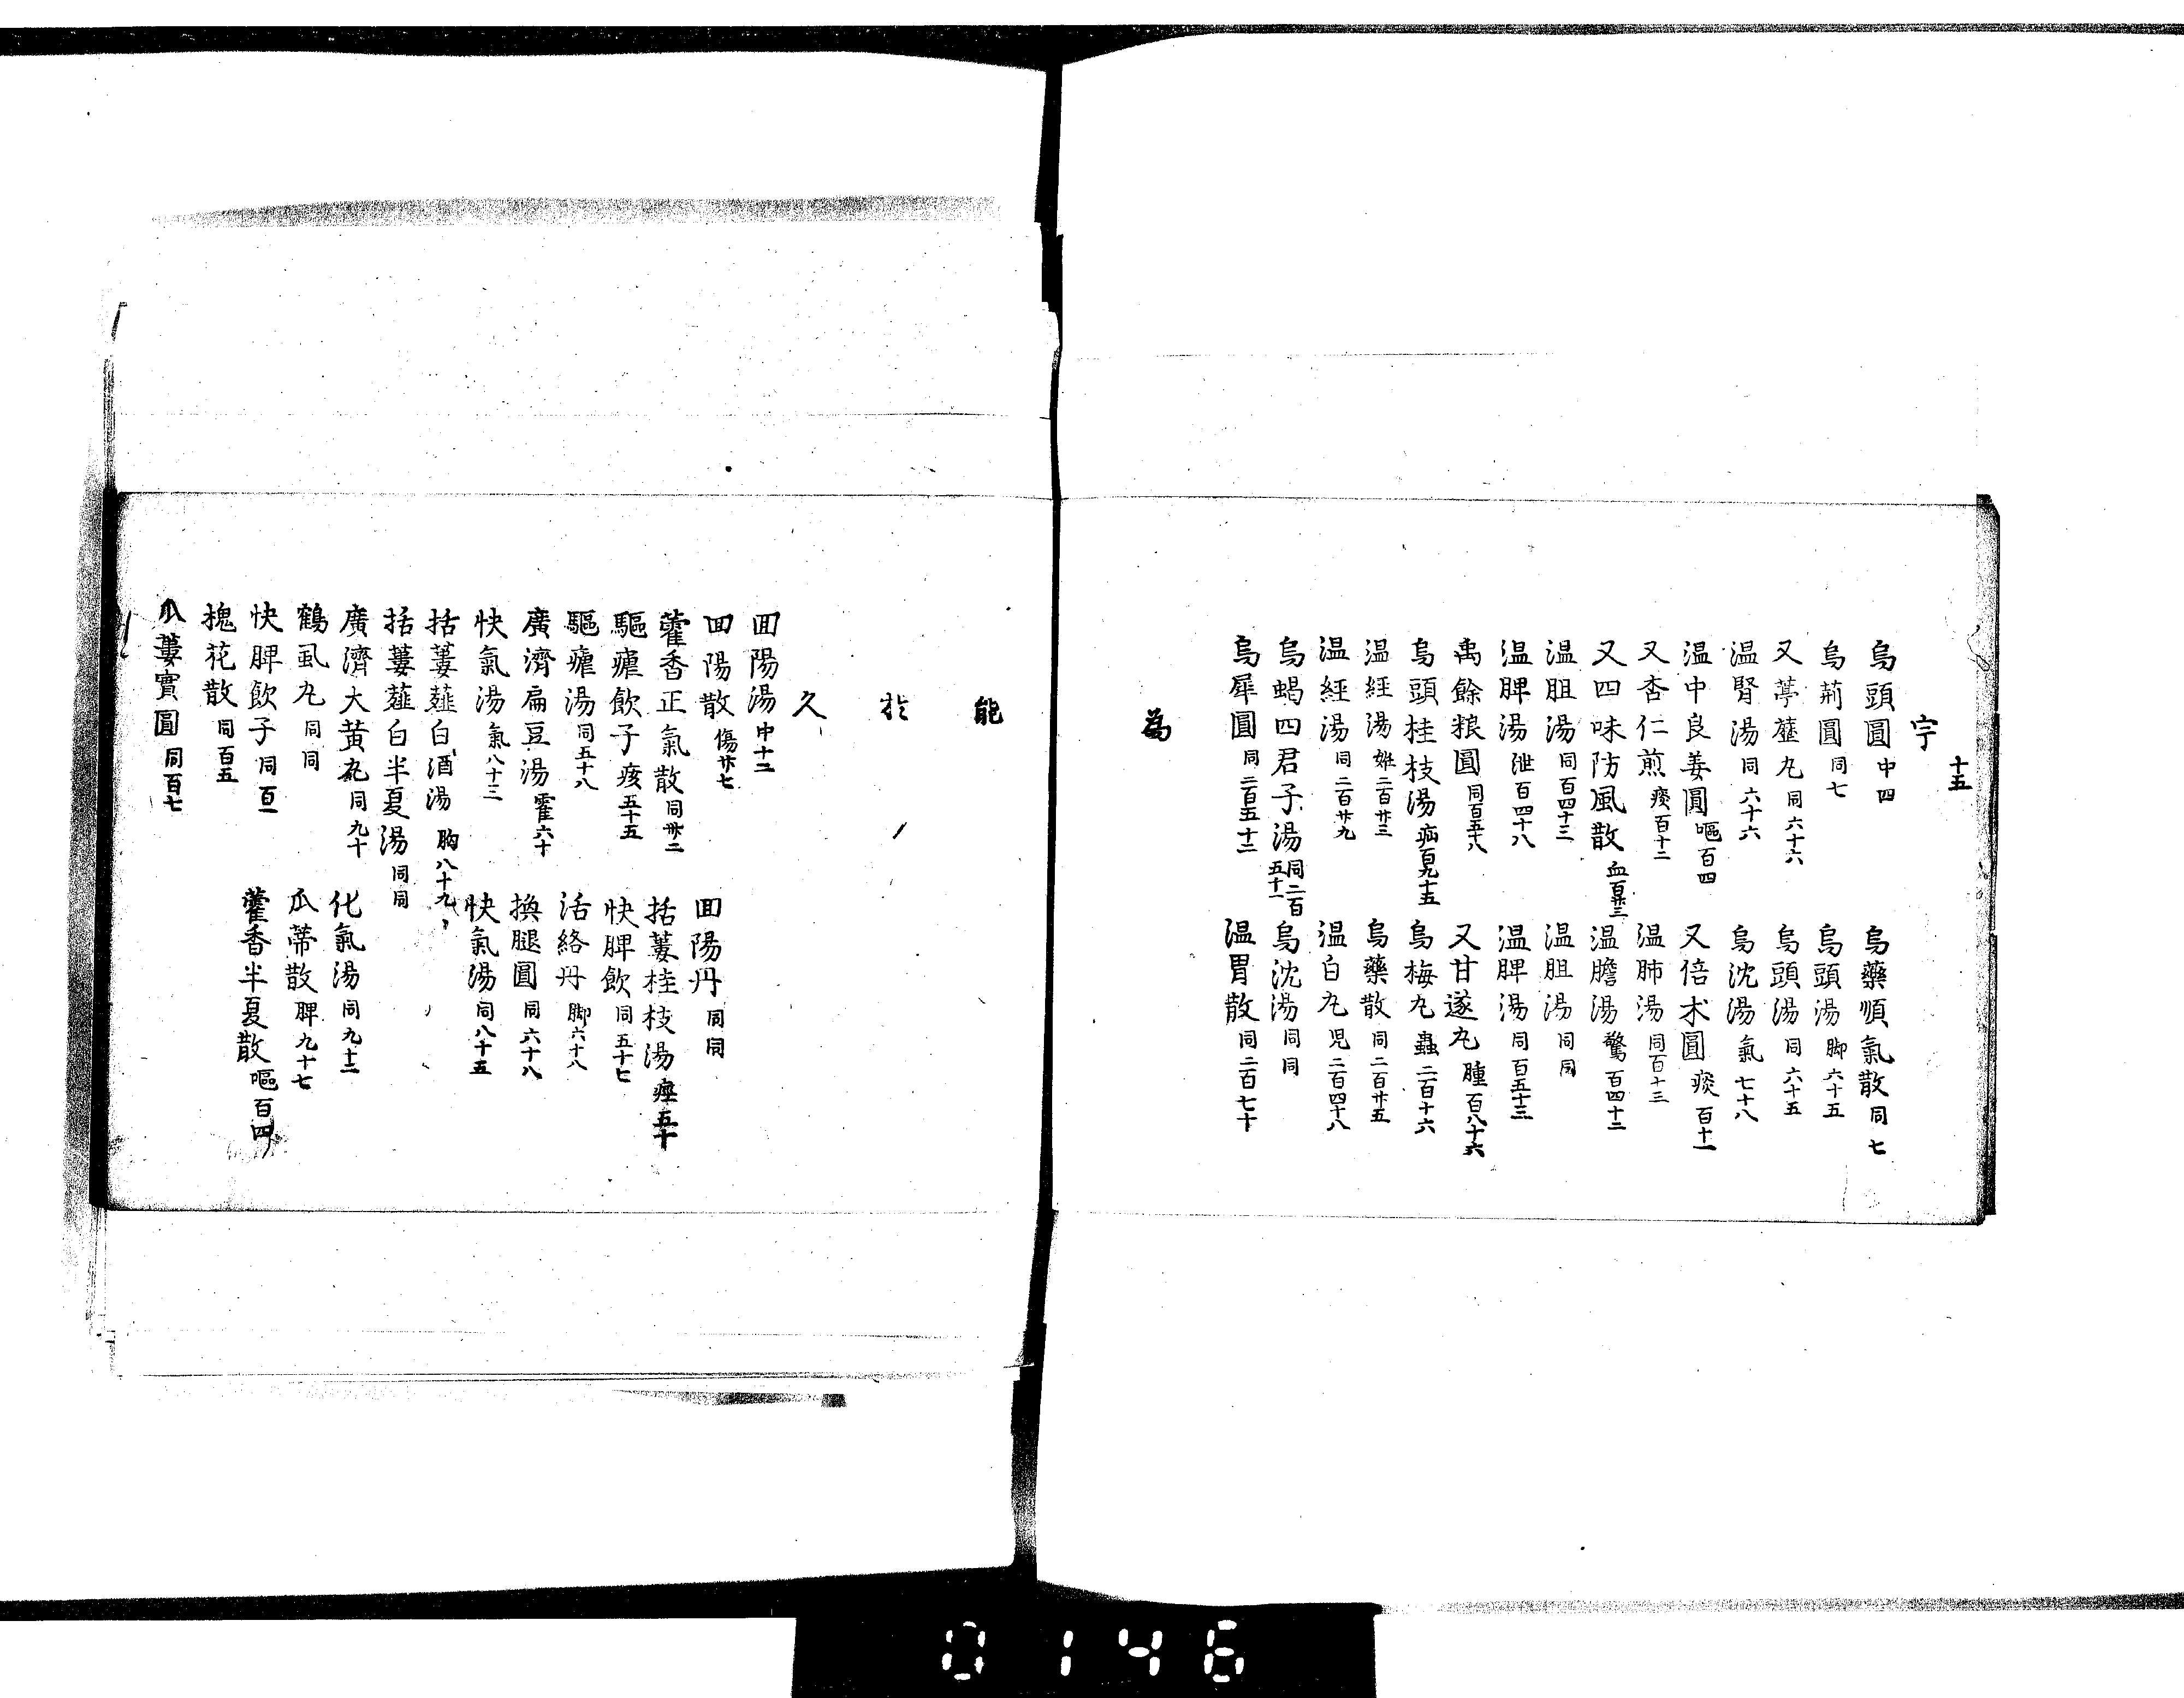 十五
宇
烏頭圓 中四
烏藥順氣散 同七
烏荊圓 同七
烏頭湯 脚六十五
又葶藶丸 同六十六
烏頭湯 同六十五
温腎湯 同六十六
烏沈湯 氣七十八
温中良姜圓 嘔百四
又倍术圓 痰百十一
又杏仁煎 痰百十二
温肺湯 同百十三
又四味防風散 血百廿三
温膽湯 驚百四十二
温胆湯 同百四十三
温胆湯 同同
温脾湯 泄百四十八
温脾湯 同百五十三
禹餘粮圓 同百五十八
又甘遂丸 腫百八十六
烏頭桂枝湯 疝百九十五
烏梅丸 蟲二百十六
温経湯 二百廿三
烏藥散 同二百廿五
温経湯 同二百廿九
温白丸 児二百四十八
烏蝎四君子湯 同二百五十一
烏沈湯 同同
烏犀圓 同二百五十二
温胃散 同二百七十
為
能
於
久
回陽湯 中十二
回陽散 傷廿七
回陽丹 同同
藿香正氣散 同卅二
括蔞桂枝湯 痙五十
驅瘧飲子 痎五十五
快脾飲 同五十七
驅瘧湯 同五十八
活絡丹 脚六十八
廣濟扁豆湯 霍六十
換腿圓 同六十八
快氣湯 氣八十三
快氣湯 同八十五
括蔞薤白酒湯 胸八十九
括蔞薤白半夏湯 同同
廣濟大黄丸 同九十
化氣湯 同九十二
鶴虱丸 同同
瓜蒂散 脾九十七
快脾飲子 同百一
藿香半夏散 嘔百四
槐花散 同百五
瓜蔞實圓 同百七
0146